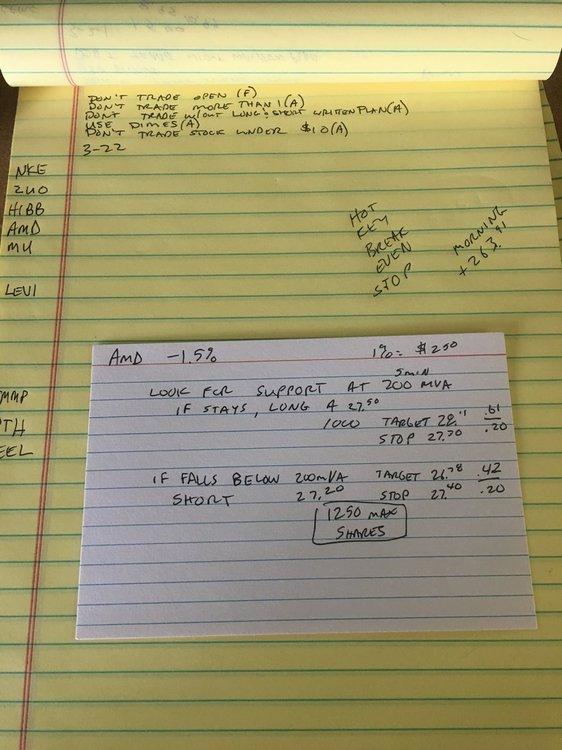 DON'T TRADE OPEN (F)
DON'T TRADE MORE THAN 1 (A)
DON'T TRADE W/OUT LONG & SHORT WRITTEN PLAN (A)
USE DIMES (A)
DON'T TRADE STOCK UNDER $10 (A)
3-22
NKE
ZUO
HIBB
AMD
MU
LEVI
HOT
KEY
BREAK
EVEN
STOP
MORNING
+263.91
AMD -1.5% 1% = $250
5 MIN
LOOK FOR SUPPORT AT 200 MVA
IF STAYS, LONG A 27.50
1000 TARGET 28.11 .61
STOP 27.30 .20
IF FALLS BELOW 200MVA TARGET 26.78 .42
SHORT 27.20 STOP 27.40 .20
1250 MAX
SHARES
MMP
TH
EEL